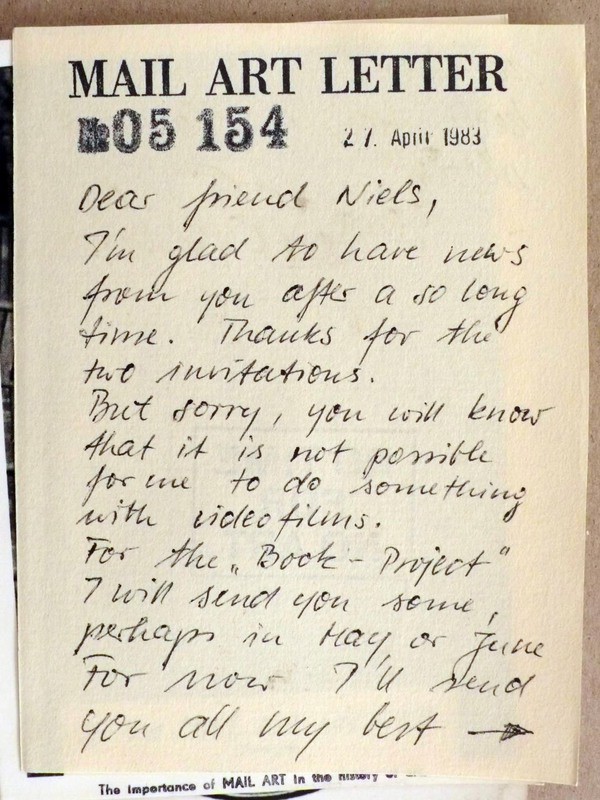 MAIL ART LETTER
№05 154 27. April 1983
Dear friend Niels,
I'm glad to have news
from you after a so long
time. Thanks for the
two invitations.
But sorry, you will know
that it is not possible
for me to do something
with videofilms.
For the „Book-Project"
I will send you some,
perhaps in May or June
For now I'll send
you all my best →
The importance of MAIL ART in the history of